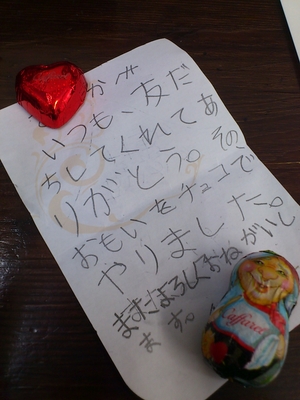 いつも、友だ
ちしてくれてあ
りがとう。その
おもいをチョコで
やりました。
まだまだよろしくおねがいし
ます。
Caffarel